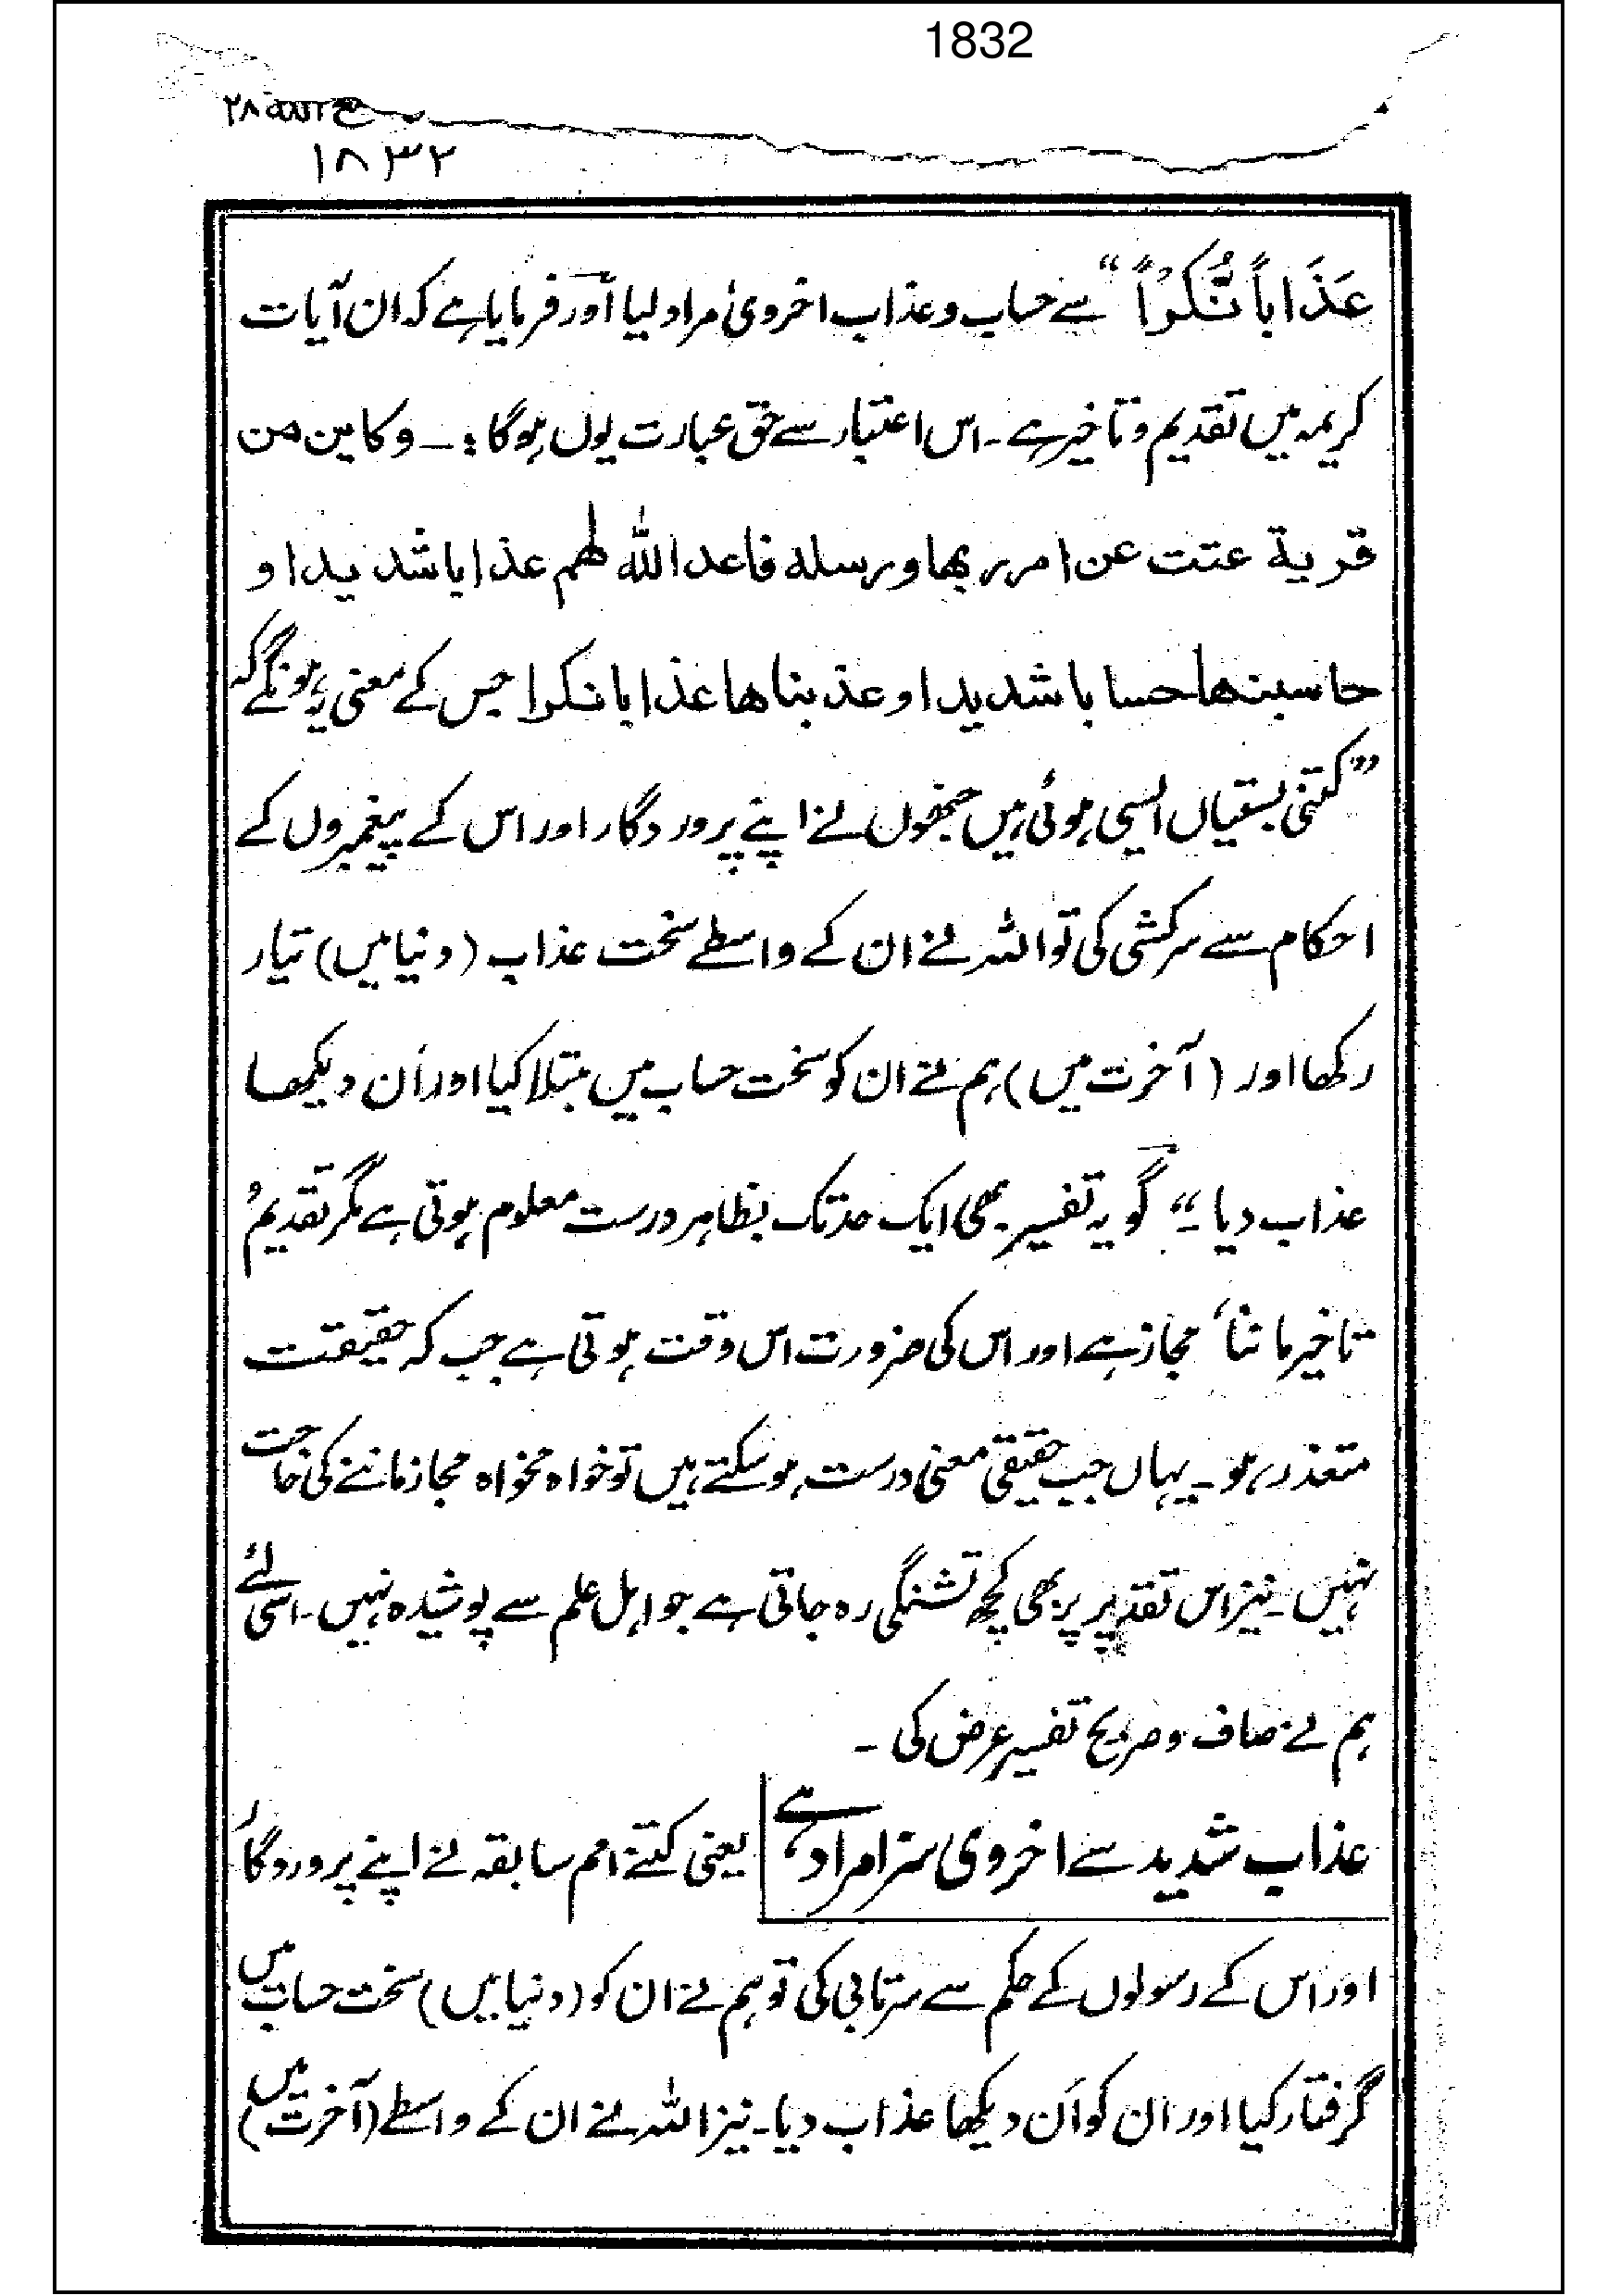 1832
۱۸۳۲
عَذَاباً نُّكْراً“ سے حساب و عذاب اخروی مراد لیا اور فرمایا ہے کہ ان آیات
کریمہ میں تقدیم و تاخیر ہے۔ اس اعتبار سے حق عبارت یوں ہوگا :۔ وکاین من
قریة عتت عن امر ربها ورسله فاعد الله لهم عذابا شدیدا و
حاسبنها حسابا شدیدا و عذبناها عذابا نكرا جس کے معنی یہ ہونگے کہ
”کتنی بستیاں ایسی ہوئی ہیں جنھوں نے اپنے پروردگار اور اس کے پیغمبروں کے
احکام سے سرکشی کی تو اللہ نے ان کے واسطے سخت عذاب (دنیا میں) تیار
رکھا اور (آخرت میں) ہم نے ان کو سخت حساب میں مبتلا کیا اور اَن دیکھا
عذاب دیا۔“ گو یہ تفسیر بھی ایک حد تک بظاہر درست معلوم ہوتی ہے مگر تقدیم و
تاخیر ماننا مجاز ہے اور اس کی ضرورت اس وقت ہوتی ہے جب کہ حقیقت
متعذر ہو۔ یہاں جب حقیقی معنی درست ہو سکتے ہیں تو خواہ مخواہ مجاز ماننے کی حاجت
نہیں۔ نیز اس تقدیر پر بھی کچھ تشنگی رہ جاتی ہے جو اہل علم سے پوشیدہ نہیں۔ اسی لئے
ہم نے صاف و صریح تفسیر عرض کی۔
عذاب شدید سے اخروی سزا مراد ہے، یعنی کتنے امم سابقہ نے اپنے پروردگار
اور اس کے رسولوں کے حکم سے سرتابی کی تو ہم نے ان کو (دنیا میں) سخت حساب میں
گرفتار کیا اور ان کو اَن دیکھا عذاب دیا۔ نیز اللہ نے ان کے واسطے (آخرت میں)